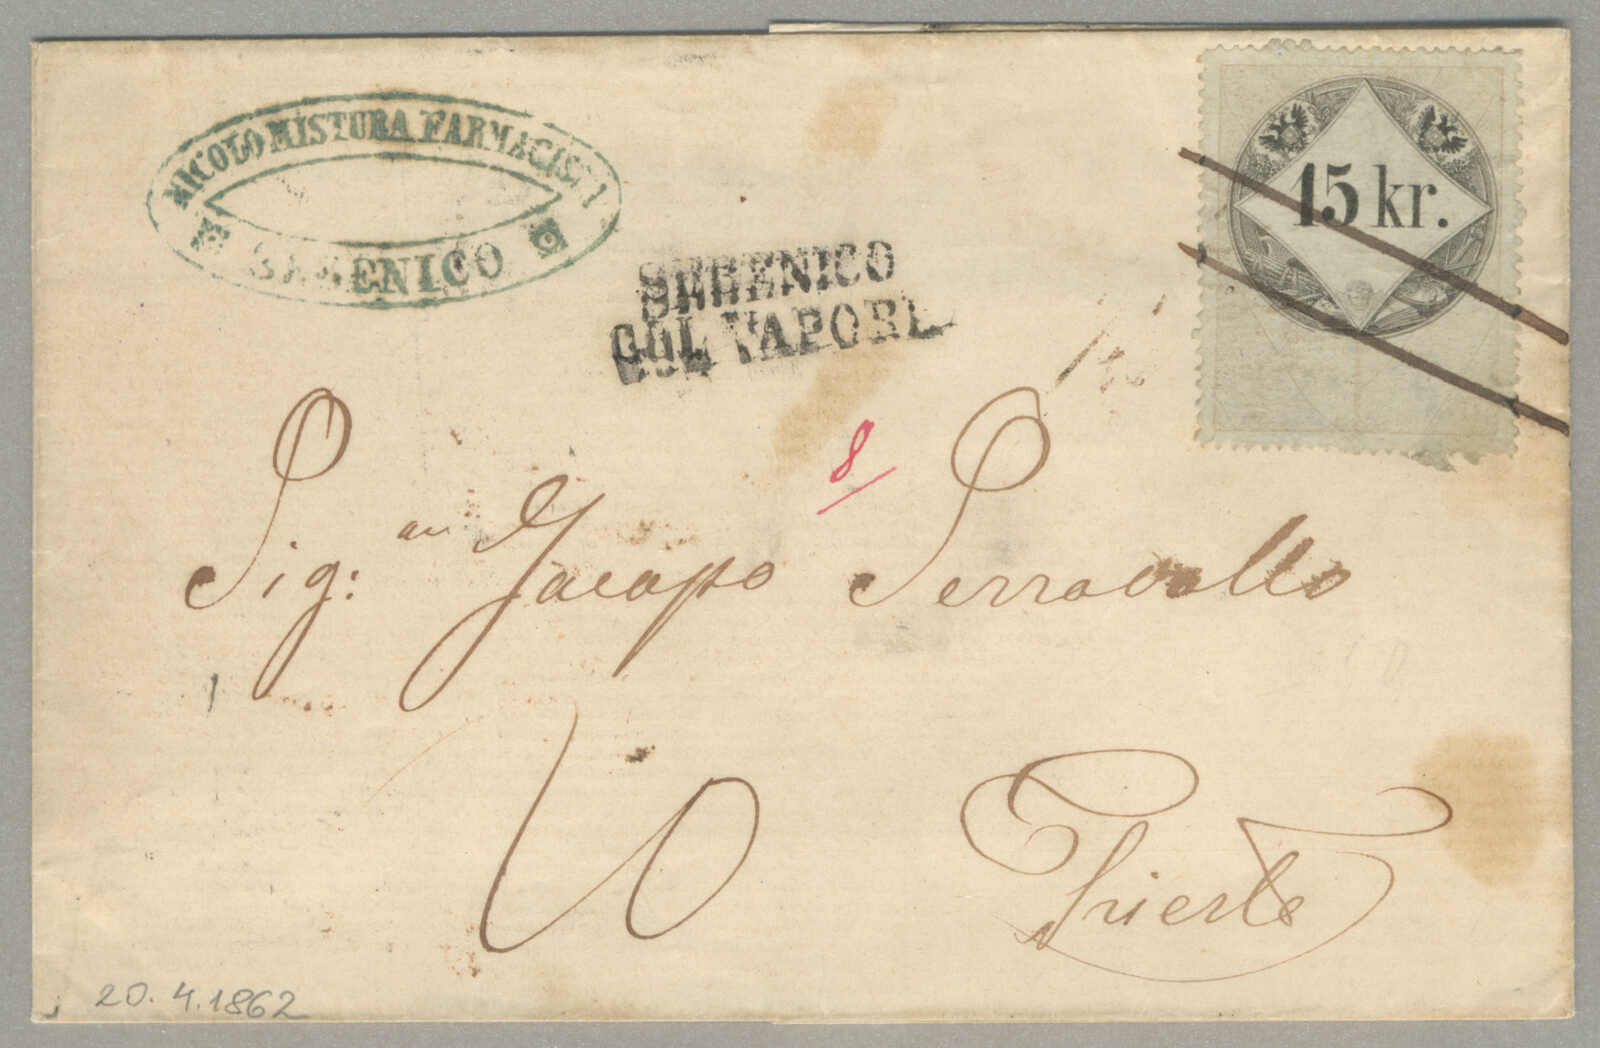 NICOLO MISTURA FARMACISTA
SEBENICO
15 kr.
SEBENICO
COL VAPORE
8
Sig: Jacopo Serravallo
Trieste
20.4.1862